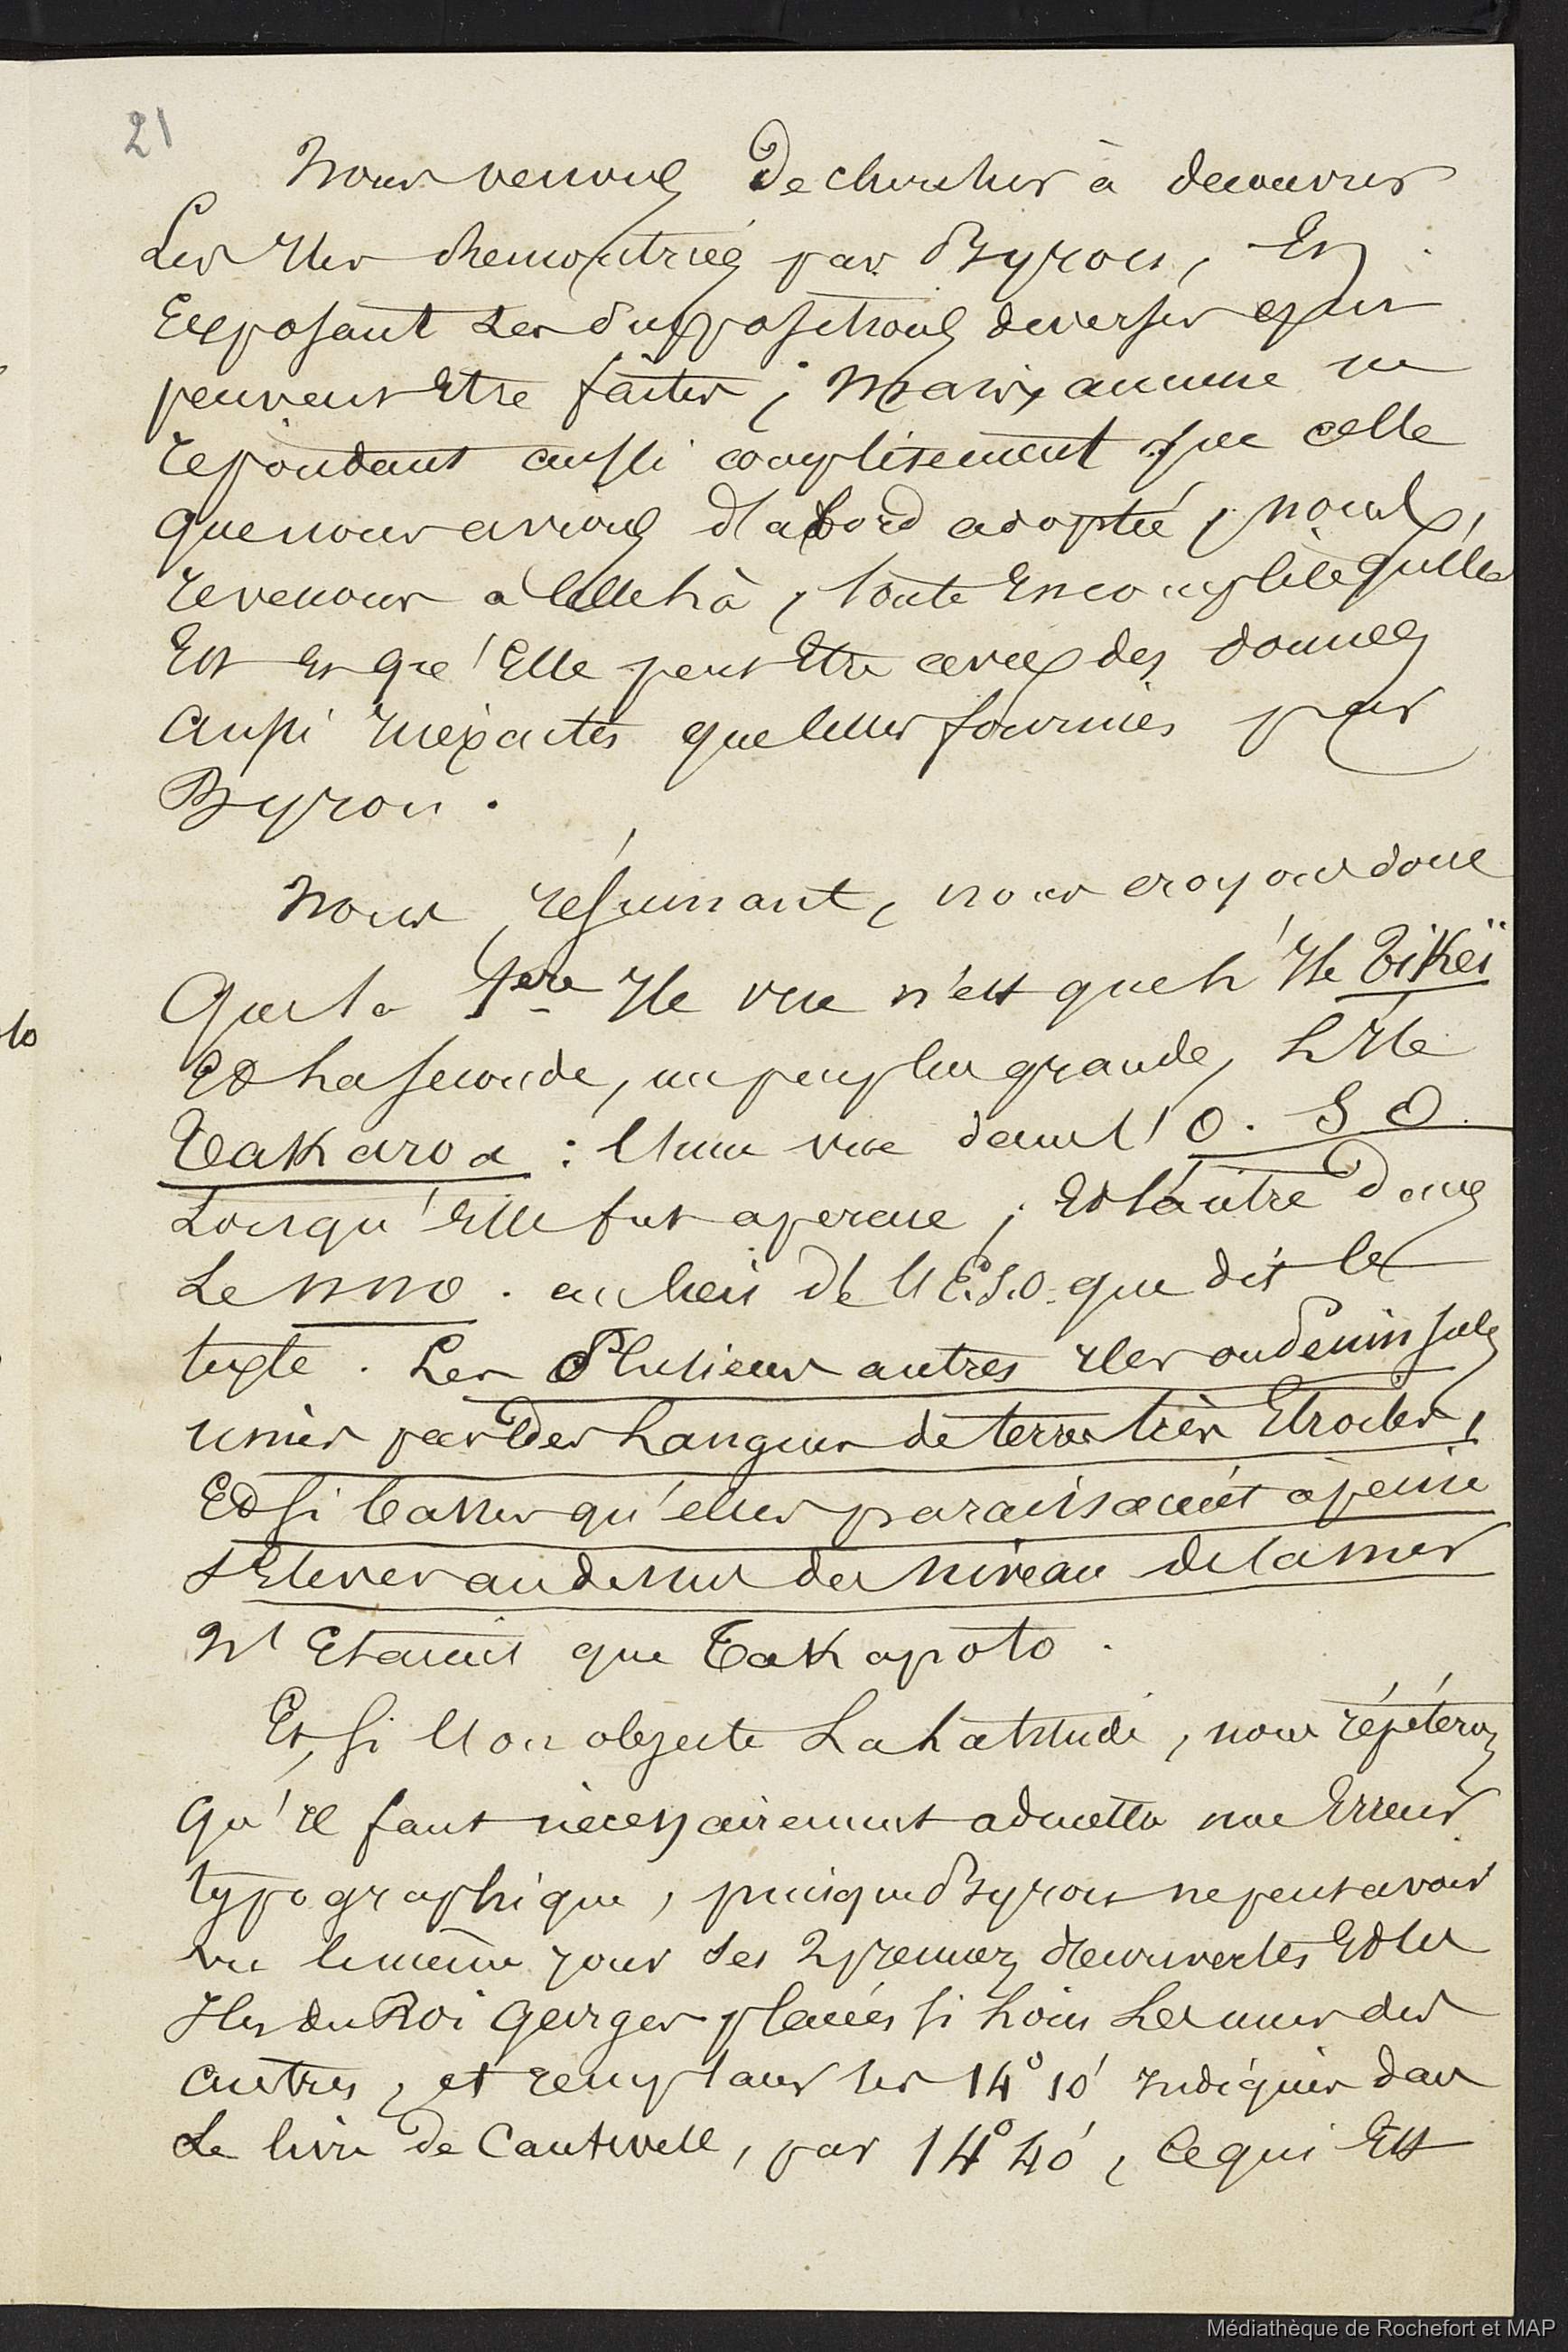 21
Nous venons de chercher à decouvrir
Les Iles rencontrées par Byron, En
Exposant Les Suppositions diverses qui
peuvent Etre faites ; Mais, aucune ne
repondant aussi complètement que celle
que nous avions d'abord adoptée, nous,
revenons à Celle là, toute Incomplète qu'elle
Est Et qu'Elle peut Etre avec des données
Aussi Inéxactes que celles fournies par
Byron.
Nous résumant, nous croyons donc
Que la 1ere Ile vue n'est que l'Ile Tikeï
Et la seconde, un peu plus grande, L'Ile
Takaroa : l'une vue dans l'O. S O.
Lorsqu'Elle fut apercue ; Et l'autre Dans
Le NNO. au lieu de l'E.S.O. que dit le
texte. Les Plusieurs autres Iles ou Peninsules
unies par Des Langues de terre très Etroites,
Et si basses qu'elles paraissaient à peine
s'Elever au dessus du niveau de la mer
N'Etaient que Takapoto.
Et, si l'on objecte La Latitude, nous répéterons
Qu'Il faut nécessairement admettre une Erreur
typographique, puisque Byron ne peut avoir
vu le même jour Ses 2 premières découvertes Et les
Iles du Roi Georges placées si Loin Les unes des
autres, et remplacer les 14° 10' Indiqués dans
Le livre de Cantwell, par 14° 40', Ce qui Est
Médiathèque de Rochefort et MAP